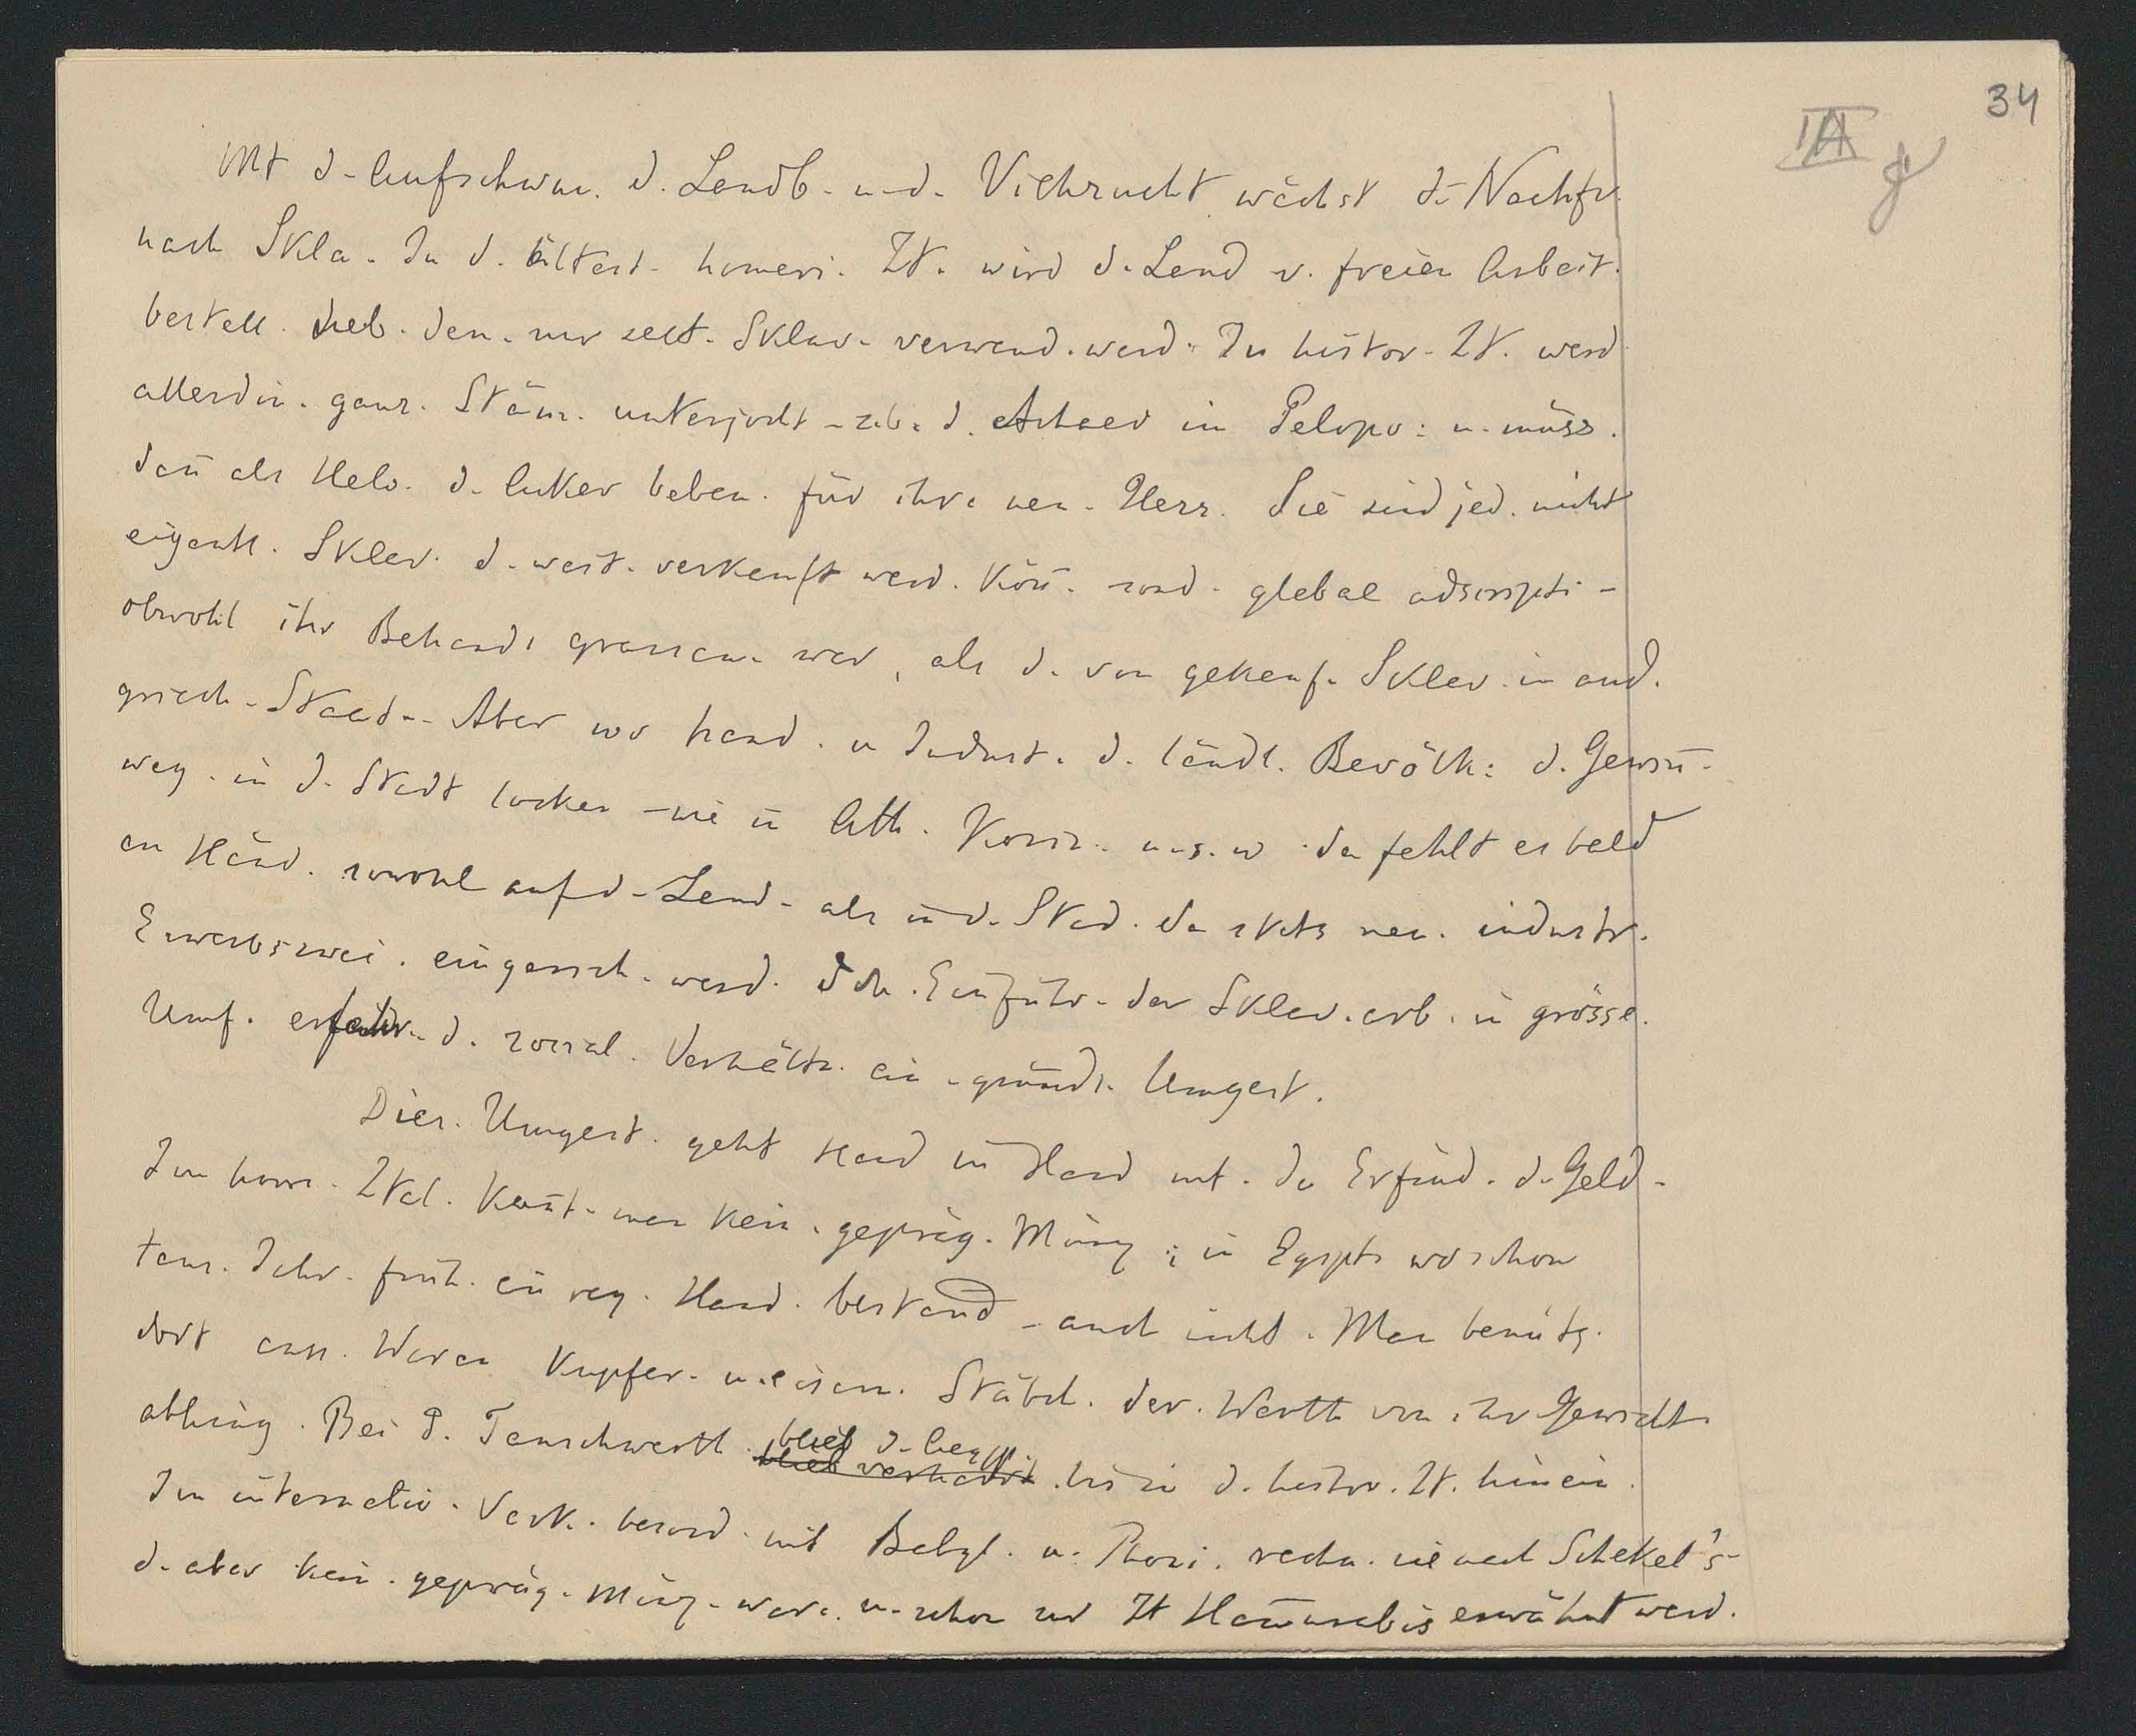 34
IIA
Mt d. Aufschwu. d. Landb. u. d. Viehzucht wächst d. Nachfr.
nach Skla. In d. ältest. homeri. Zt. wird d. Land v. freien Arbeit.
bestell. neb. den. nur selt. Sklav. verwend. werd. In histor. Zt. werd
allerdin. ganz. Stäm. unterjocht - z. b. d. Achaer im Pelopo: u. müss.
dañ als Helo. d. Acker beben. für ihre neu. Herr. Sie sind jed. nicht
eigentl. Sklav. d. weit. verkauft werd. köñ. sond. glebae adscripti -
obwohl ihr Behandl grausam. war, als d. von gekauf. Sklav. in and.
griech. Staat.. Aber wo Hand. u Indust. d. ländl. Bevölk: d. Gewiñ.
weg. in d. Stadt locken - wie in Ath. Korin. u. s. w. da fehlt es bald
an Händ. sowohl auf d. Land. als in d. Stad. da stets neu. industr.
Erwerbszwei. eingerich. werd. Dch. Einführ. der Sklav. arb. in grösse.
Umf. erfahr. d. sozial. Verhältn. ein. gründl. Umgest.
Dies. Umgest. geht Hand in Hand mt. de Erfind. d. Geld.
Im hom. Ztal. kañt. man kein. gepräg. Münz; in Egypt. wo schon
taus. Jahr. früh. ein reg. Hand. bestand - auch nicht. Man benütz.
dort auss. Waren Kupfer. u. eisern. Stäbch. der. Werth von ihr Gewicht
abhing. Bei d. Tauschwerth. blieb d. bis in d. histor. Zt. hinein.
Im internatio. Verk. besond. mit Babyl. u. Phoni. rechn. sie nach Schekel's
d. aber kein. gepräg. Münz. ware. u. schon zur Zt Ham̄urabis erwähnt werd.